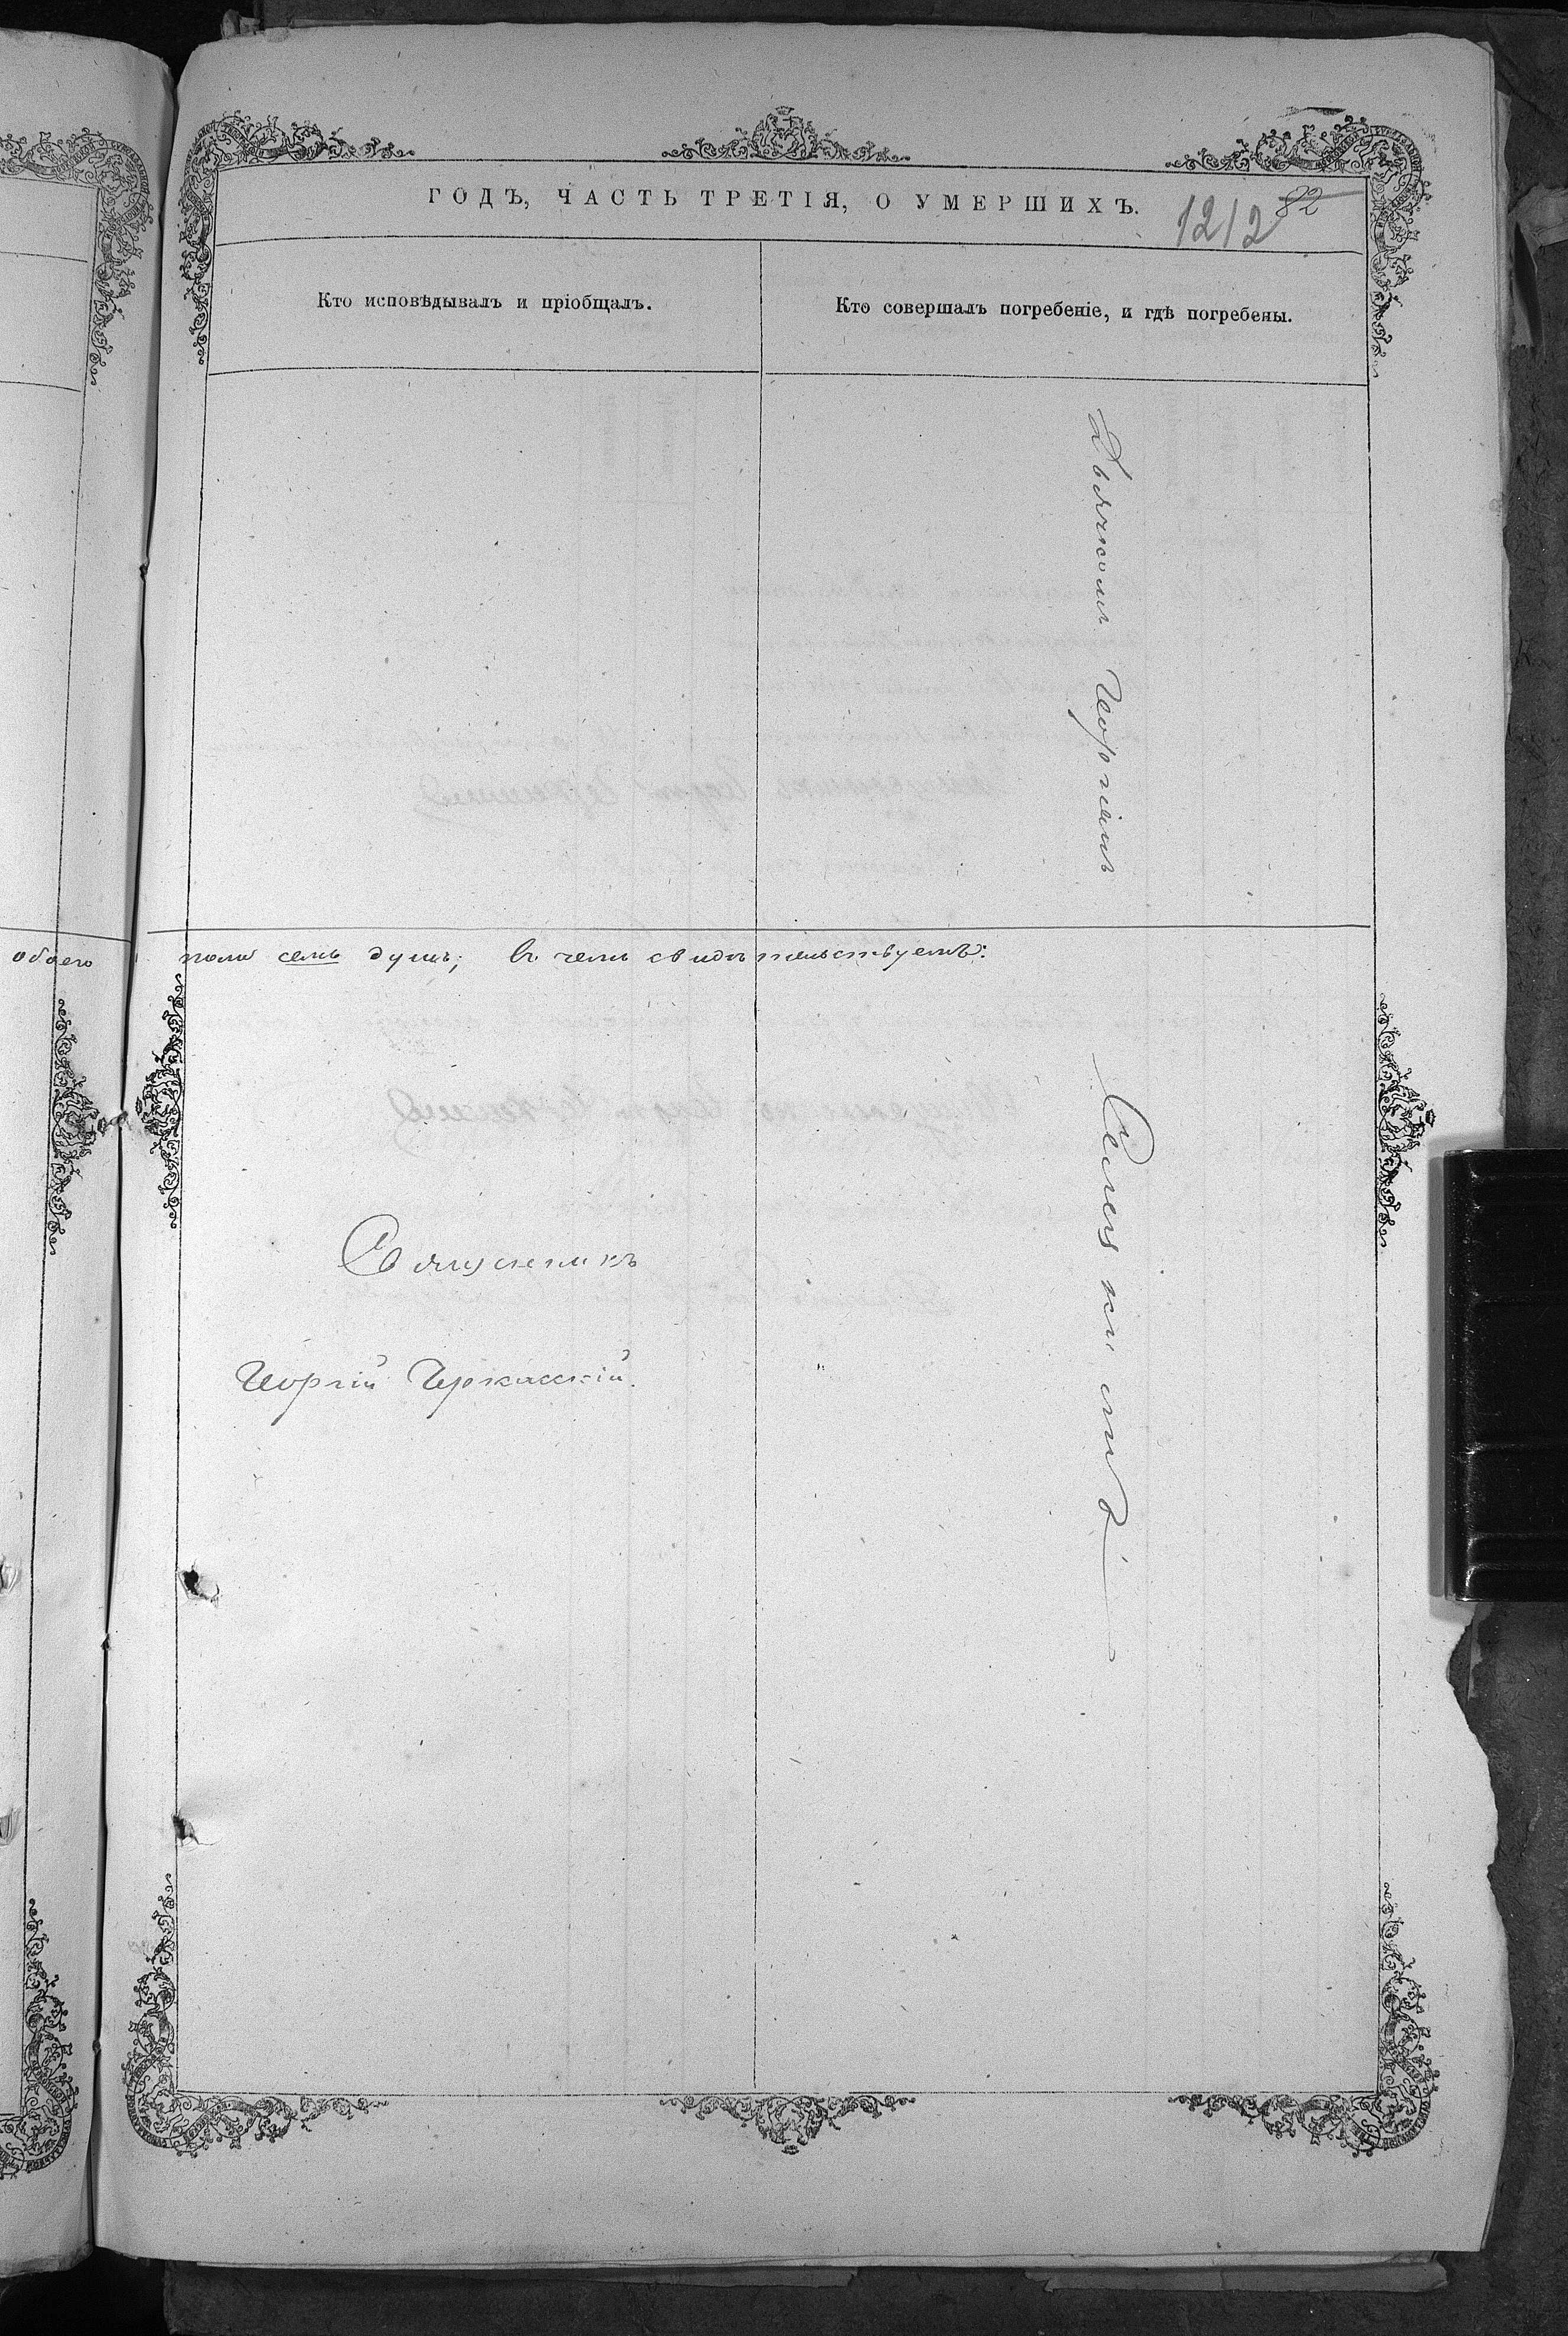 ГОДЪ, ЧАСТЬ ТРЕТІЯ, О УМЕРШИХЪ.
1212
82
Кто исповѣдывалъ и пріобщалъ.
Кто совершалъ погребеніе, и гдѣ погребены.
обоего пола семь душъ; въ чемъ свидѣтельствуемъ:
Священникъ
Георгій Черкасскій.